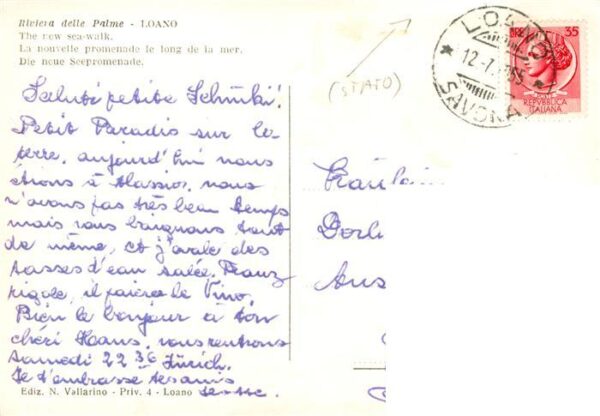 Riviera delle Palme - LOANO
The new sea-walk.
La nouvelle promenade le long de la mer.
Die neue Seepromenade.
Saluti petite Schnuki!
Petit Paradis sur la
terre, aujourd'hui nous
étions à Alassio, nous
n'avons pas très beau temps
mais nous baignons tout
de même, et j'avale des
tasses d'eau salée. Franz
rigole, il paiera le Vino.
Bien le bonjour à ton
chéri Hans, nous rentrons
Samedi 22 36 Zürich.
Je t'embrasse
Ediz. N. Vallarino - Priv. 4 - Loano
(STATO)
LOANO
12-7
SAVONA
35
REPVBBLICA
ITALIANA
Fräulein